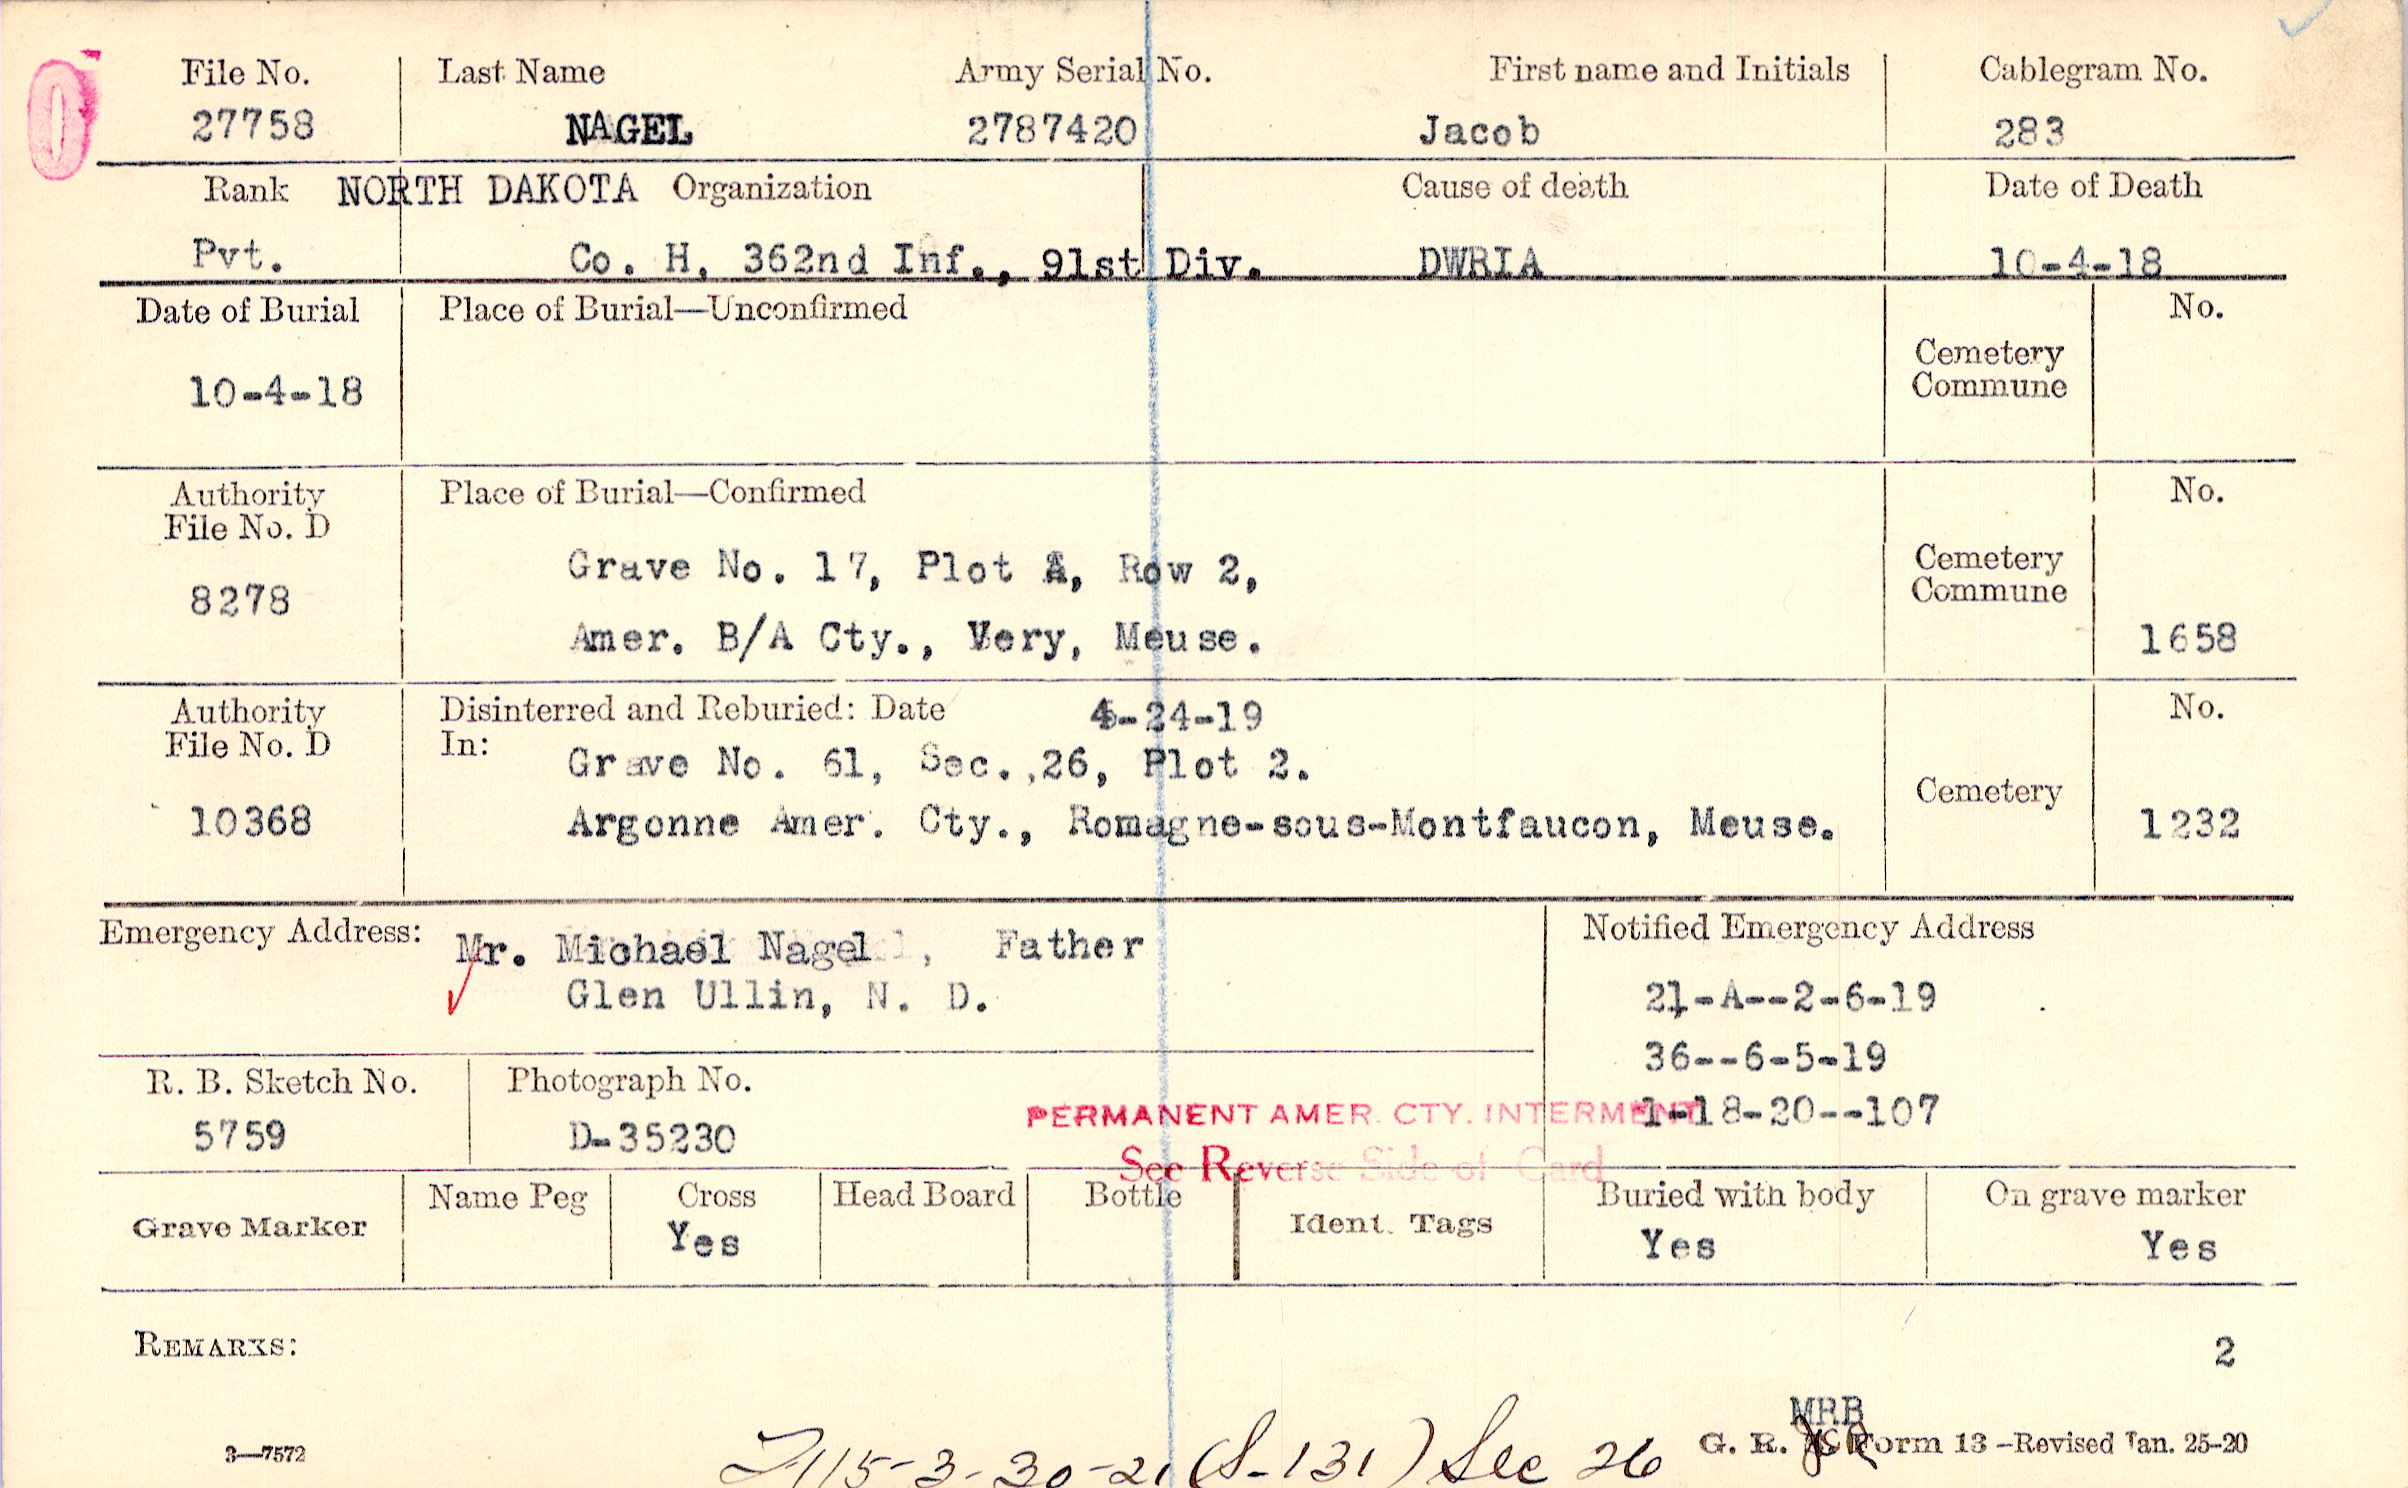 0
File No. Last Name Army Serial No. First name and Initials Cablegram No.
27758 NAGEL 2787420 Jacob 283
Rank NORTH DAKOTA Organization Cause of death Date of Death
Pvt. Co. H. 362nd Inf., 91st Div. DWRIA 10-4-18
Date of Burial Place of Burial—Unconfirmed No.
Cemetery
Commune
10-4-18
Authority Place of Burial—Confirmed No.
File No. D
Cemetery
Commune
Grave No. 17, Plot A, Row 2,
8278
Amer. B/A Cty., Very, Meuse. 1658
Authority Disinterred and Reburied: Date 4-24-19 No.
File No. D In:
Grave No. 61, Sec. 26, Plot 2.
Cemetery
10368 Argonne Amer. Cty., Romagne-sous-Montfaucon, Meuse. 1232
Emergency Address: Mr. Michael Nagel, Father Notified Emergency Address
Glen Ullin, N. D. 21-A--2-6-19
36--6-5-19
R. B. Sketch No. Photograph No.
5759 D-35230
PERMANENT AMER. CTY. INTERMENT 1-18-20--107
See Reverse Side of Card
Grave Marker Name Peg Cross Head Board Bottle Ident. Tags Buried with body On grave marker
Yes Yes Yes
REMARKS:
2
MRB
3—7572 G. R. S. Form 13—Revised Jan. 25-20
115-3-30-21 (S-131) Sec 26